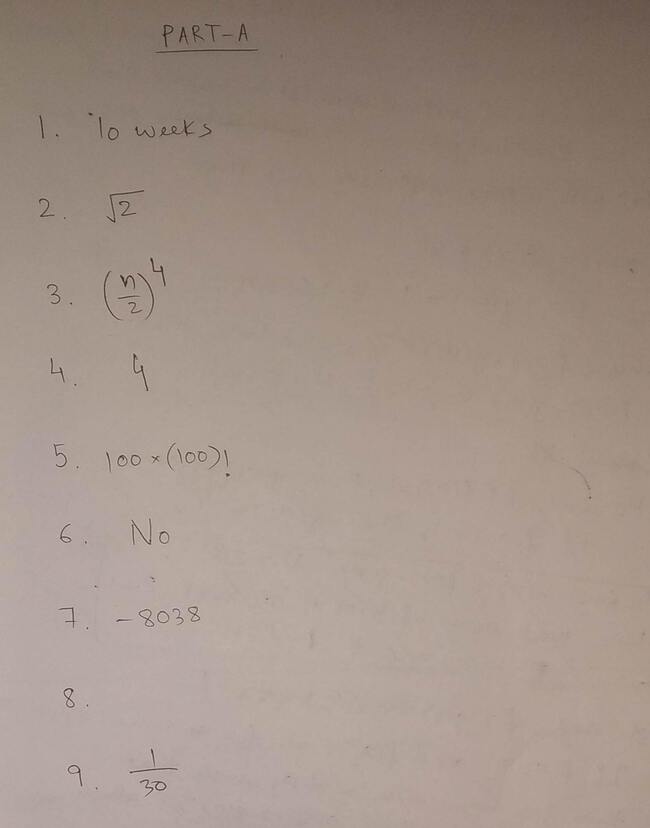 PART-A
1. 10 weeks
2. √2
3. (n/2)^4
4. 4
5. 100 × (100)!
6. No
7. -8038
8.
9. 1/30